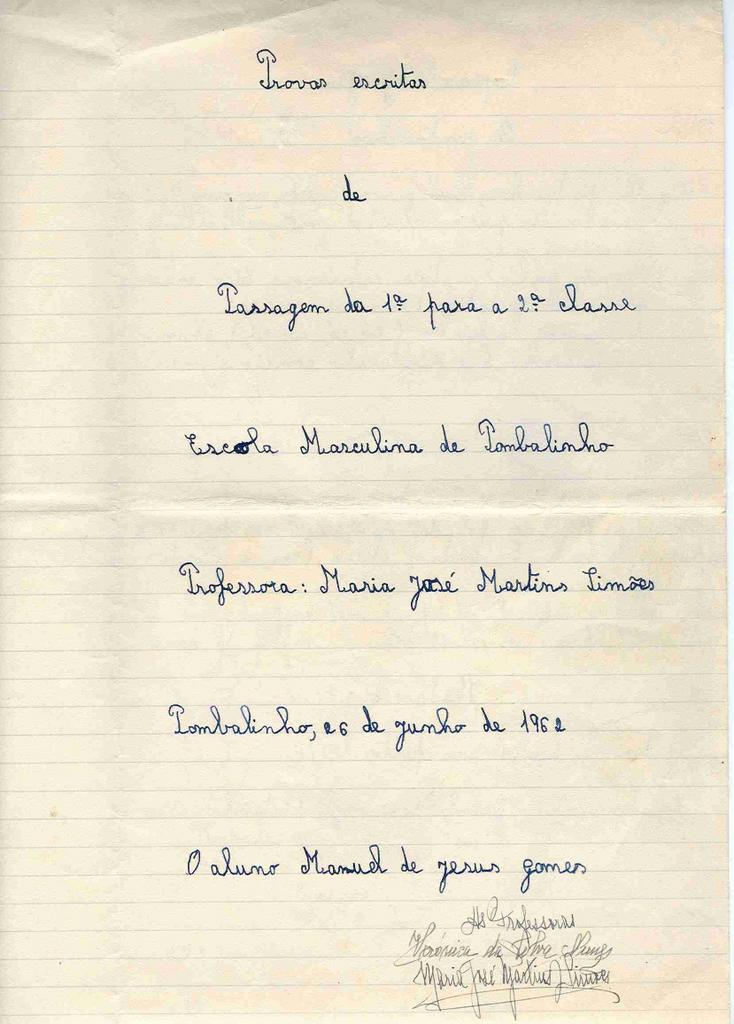 Provas escritas
de
Passagem da 1ª para a 2ª classe
Escola Masculina de Pombalinho
Professora: Maria José Martins Simões
Pombalinho, 26 de junho de 1962
O aluno Manuel de jesus gomes
As Professoras
Verónica da Silva Nunes
Maria José Martins Simões